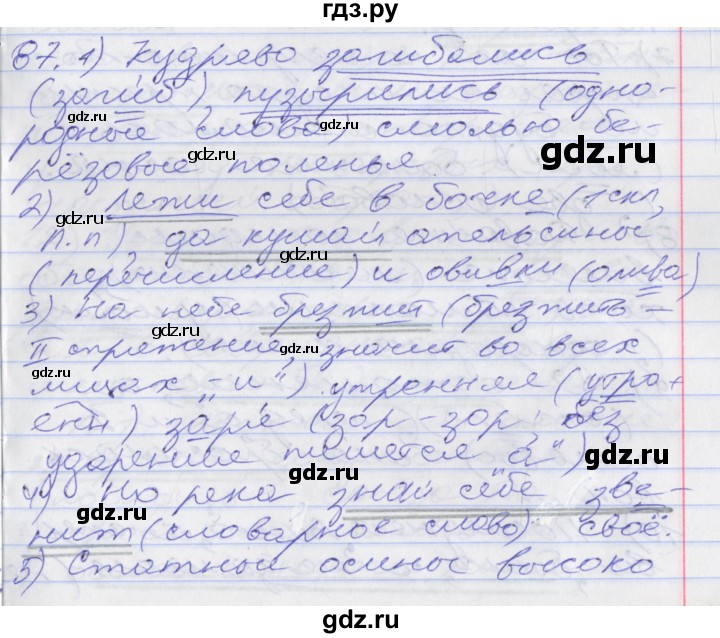 гдз.ру
87. 1) Кудрево загибались
(загиб), пузырились (одно-
родные слова) смолью бе-
рёзовые поленья.
2) Лежи себе в бочке (1 скл,
П. п), да кушай апельсины
(перечисление) и оливки (олива)
3) На небе брезжит (брезжить -
II спряжение, значит во всех
лицах „и") утренняя (утро +
енн) заре (зар-зор; без
ударение пишется „а")
4) Но река знай себе зве-
нит (словарное слово) своё.
5) Статные осины высоко
gdz.ru
gdz.ru
gdz.ru
gdz.ru
gdz.ru
gdz.ru
gdz.ru
gdz.ru
gdz.ru
gdz.ru
gdz.ru
gdz.ru
gdz.ru